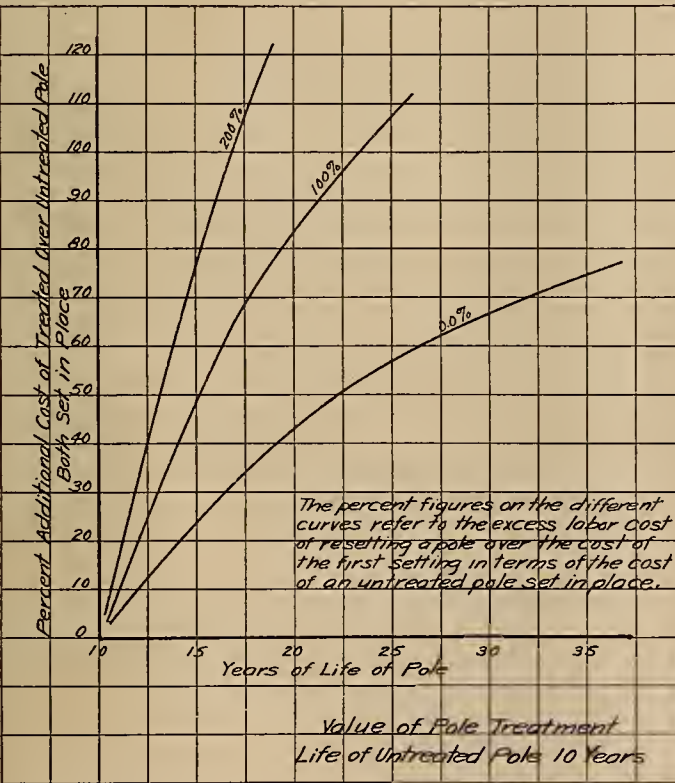 120
110
100
90
80
70
60
50
40
30
20
10
0
Percent Additional Cost of Treated Over Untreated Pole
Both Set in Place
200%
100%
0.0%
The percent figures on the different
curves refer to the excess labor cost
of resetting a pole over the cost of
the first setting in terms of the cost
of an untreated pole set in place.
10 15 20 25 30 35
Years of Life of Pole
Value of Pole Treatment
Life of Untreated Pole 10 Years